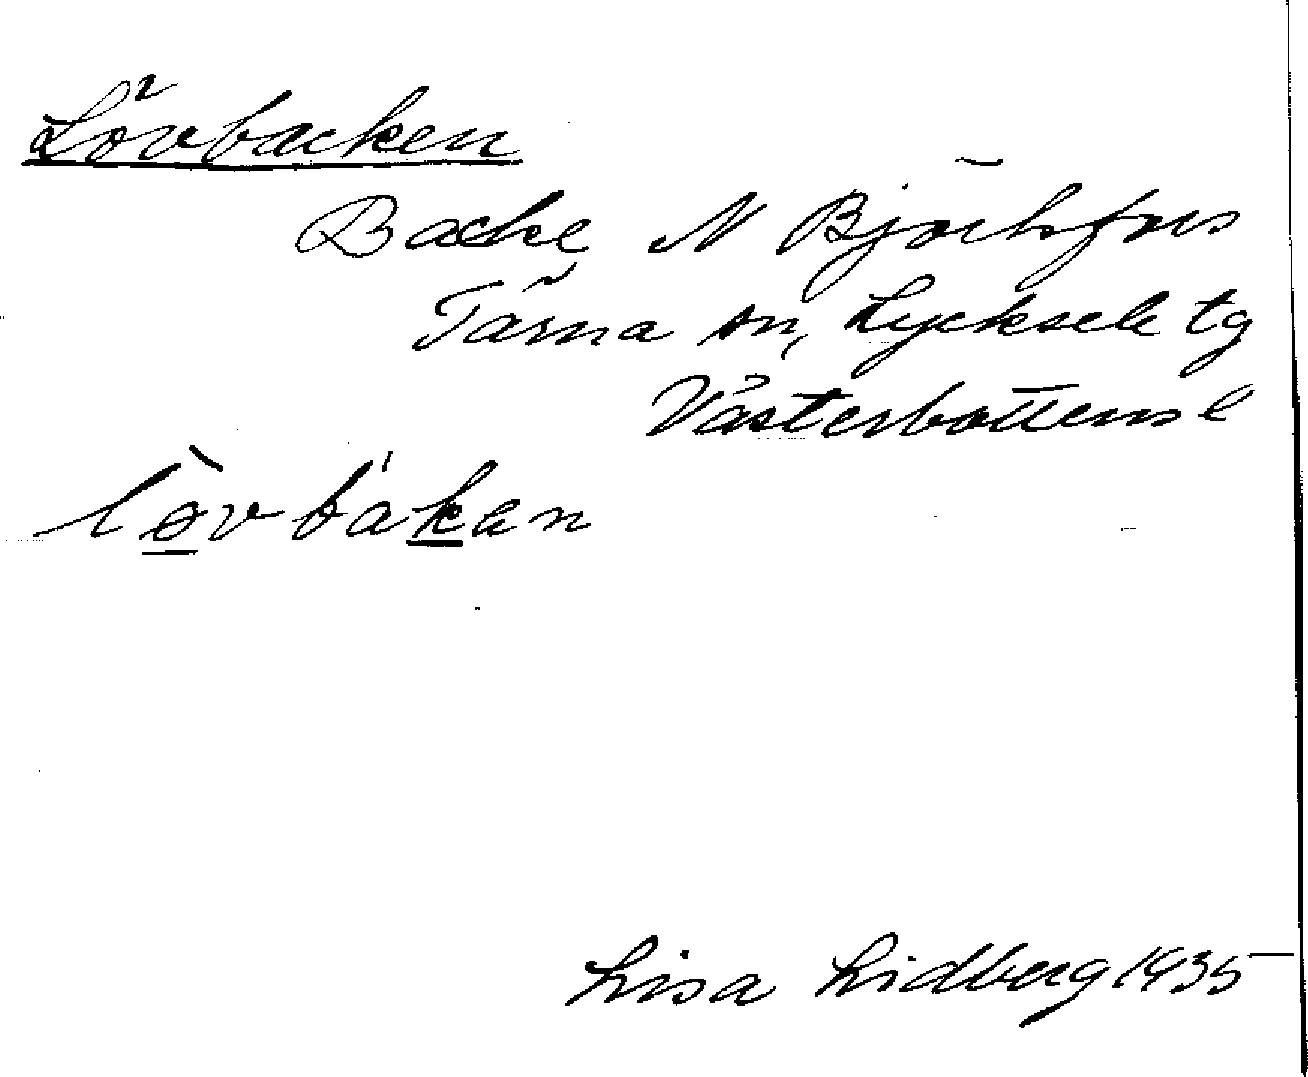 Lövbacken
Backe N Björkfors
Tärna sn, Lycksele tg
Västerbottens l
lòvbákan
Lisa Lidberg 1935